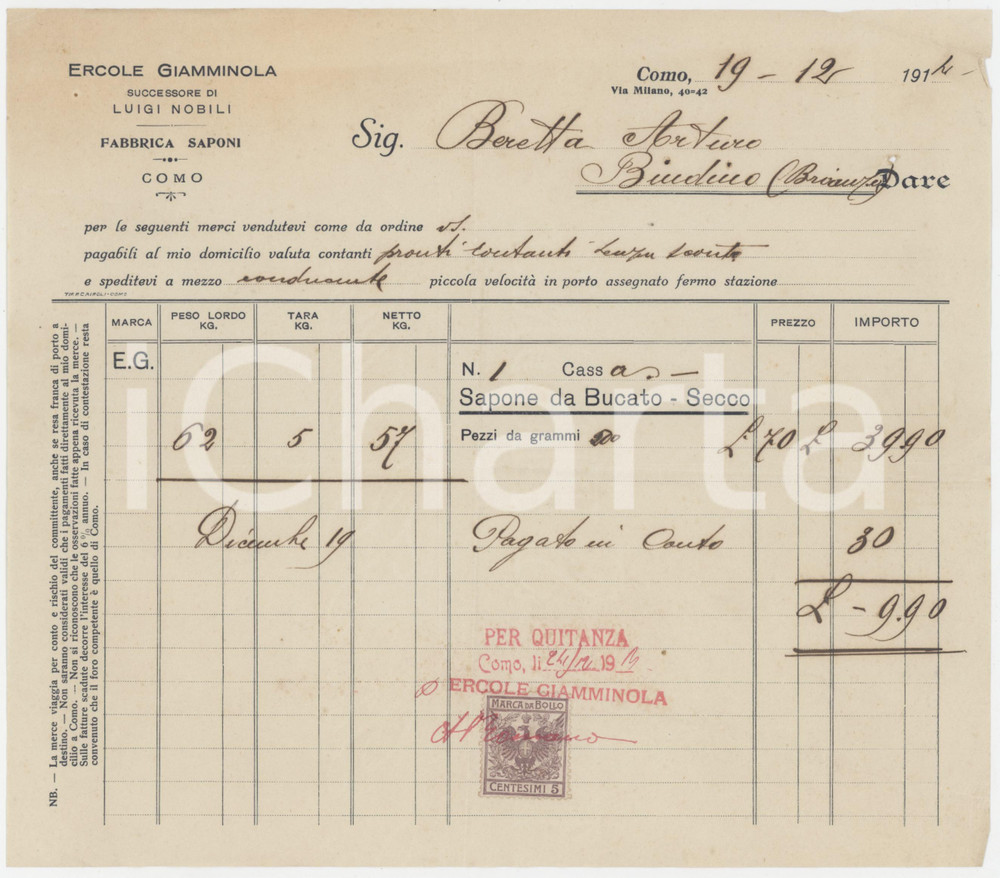 ERCOLE GIAMMINOLA
SUCCESSORE DI
LUIGI NOBILI
FABBRICA SAPONI
COMO
Como, 19 - 12 1914 -
Via Milano, 40=42
Sig. Beretta Arturo
(Brianza) Dare
per le seguenti merci vendutevi come da ordine vs.
pagabili al mio domicilio valuta contanti pronti contanti senza sconto
e speditevi a mezzo conducente piccola velocità in porto assegnato fermo stazione
MARCA PESO LORDO KG. TARA KG. NETTO KG. PREZZO IMPORTO
E.G. N. 1 Cassa. —
Sapone da Bucato - Secco
62 5 57 Pezzi da grammi £ 70 £ 39.90
Dicembre 19 Pagato in Conto 30
£ - 9.90
PER QUITANZA
Como, li 24/12 19
ERCOLE GIAMMINOLA
MARCA DA BOLLO
CENTESIMI 5
NB. — La merce viaggia per conto e rischio del committente, anche se resa franca di porto a
destino. — Non saranno considerati validi che i pagamenti fatti direttamente al mio domi-
cilio a Como. — Non si riconoscono che le osservazioni fatte appena ricevuta la merce. —
Sulle fatture scadute decorre l'interesse del 6 % annuo. — In caso di contestazione resta
convenuto che il foro competente è quello di Como.
iCharta